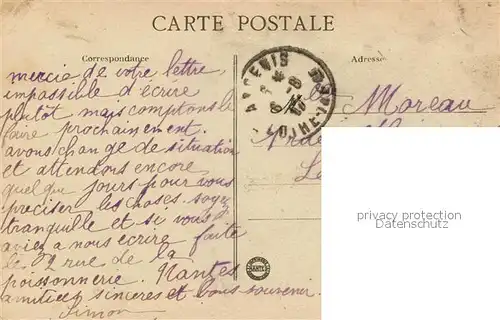 CARTE POSTALE
Correspondance
Adresse
mercie de votre lettre
impossible d'ecrire
plutôt mais comptons le
faire prochainement.
avons change de situation
et attendons encore
quelque jours pour vous
preciser les choses soyez
tranquille et si vous
aviez a nous ecrire faite
le 2 rue de la
poissonnerie. Nantes
amitiés sinceres et bons souvenir
Simon
ANCENIS
LOIRE-INF
Moreau
privacy protection
Datenschutz
NANTES